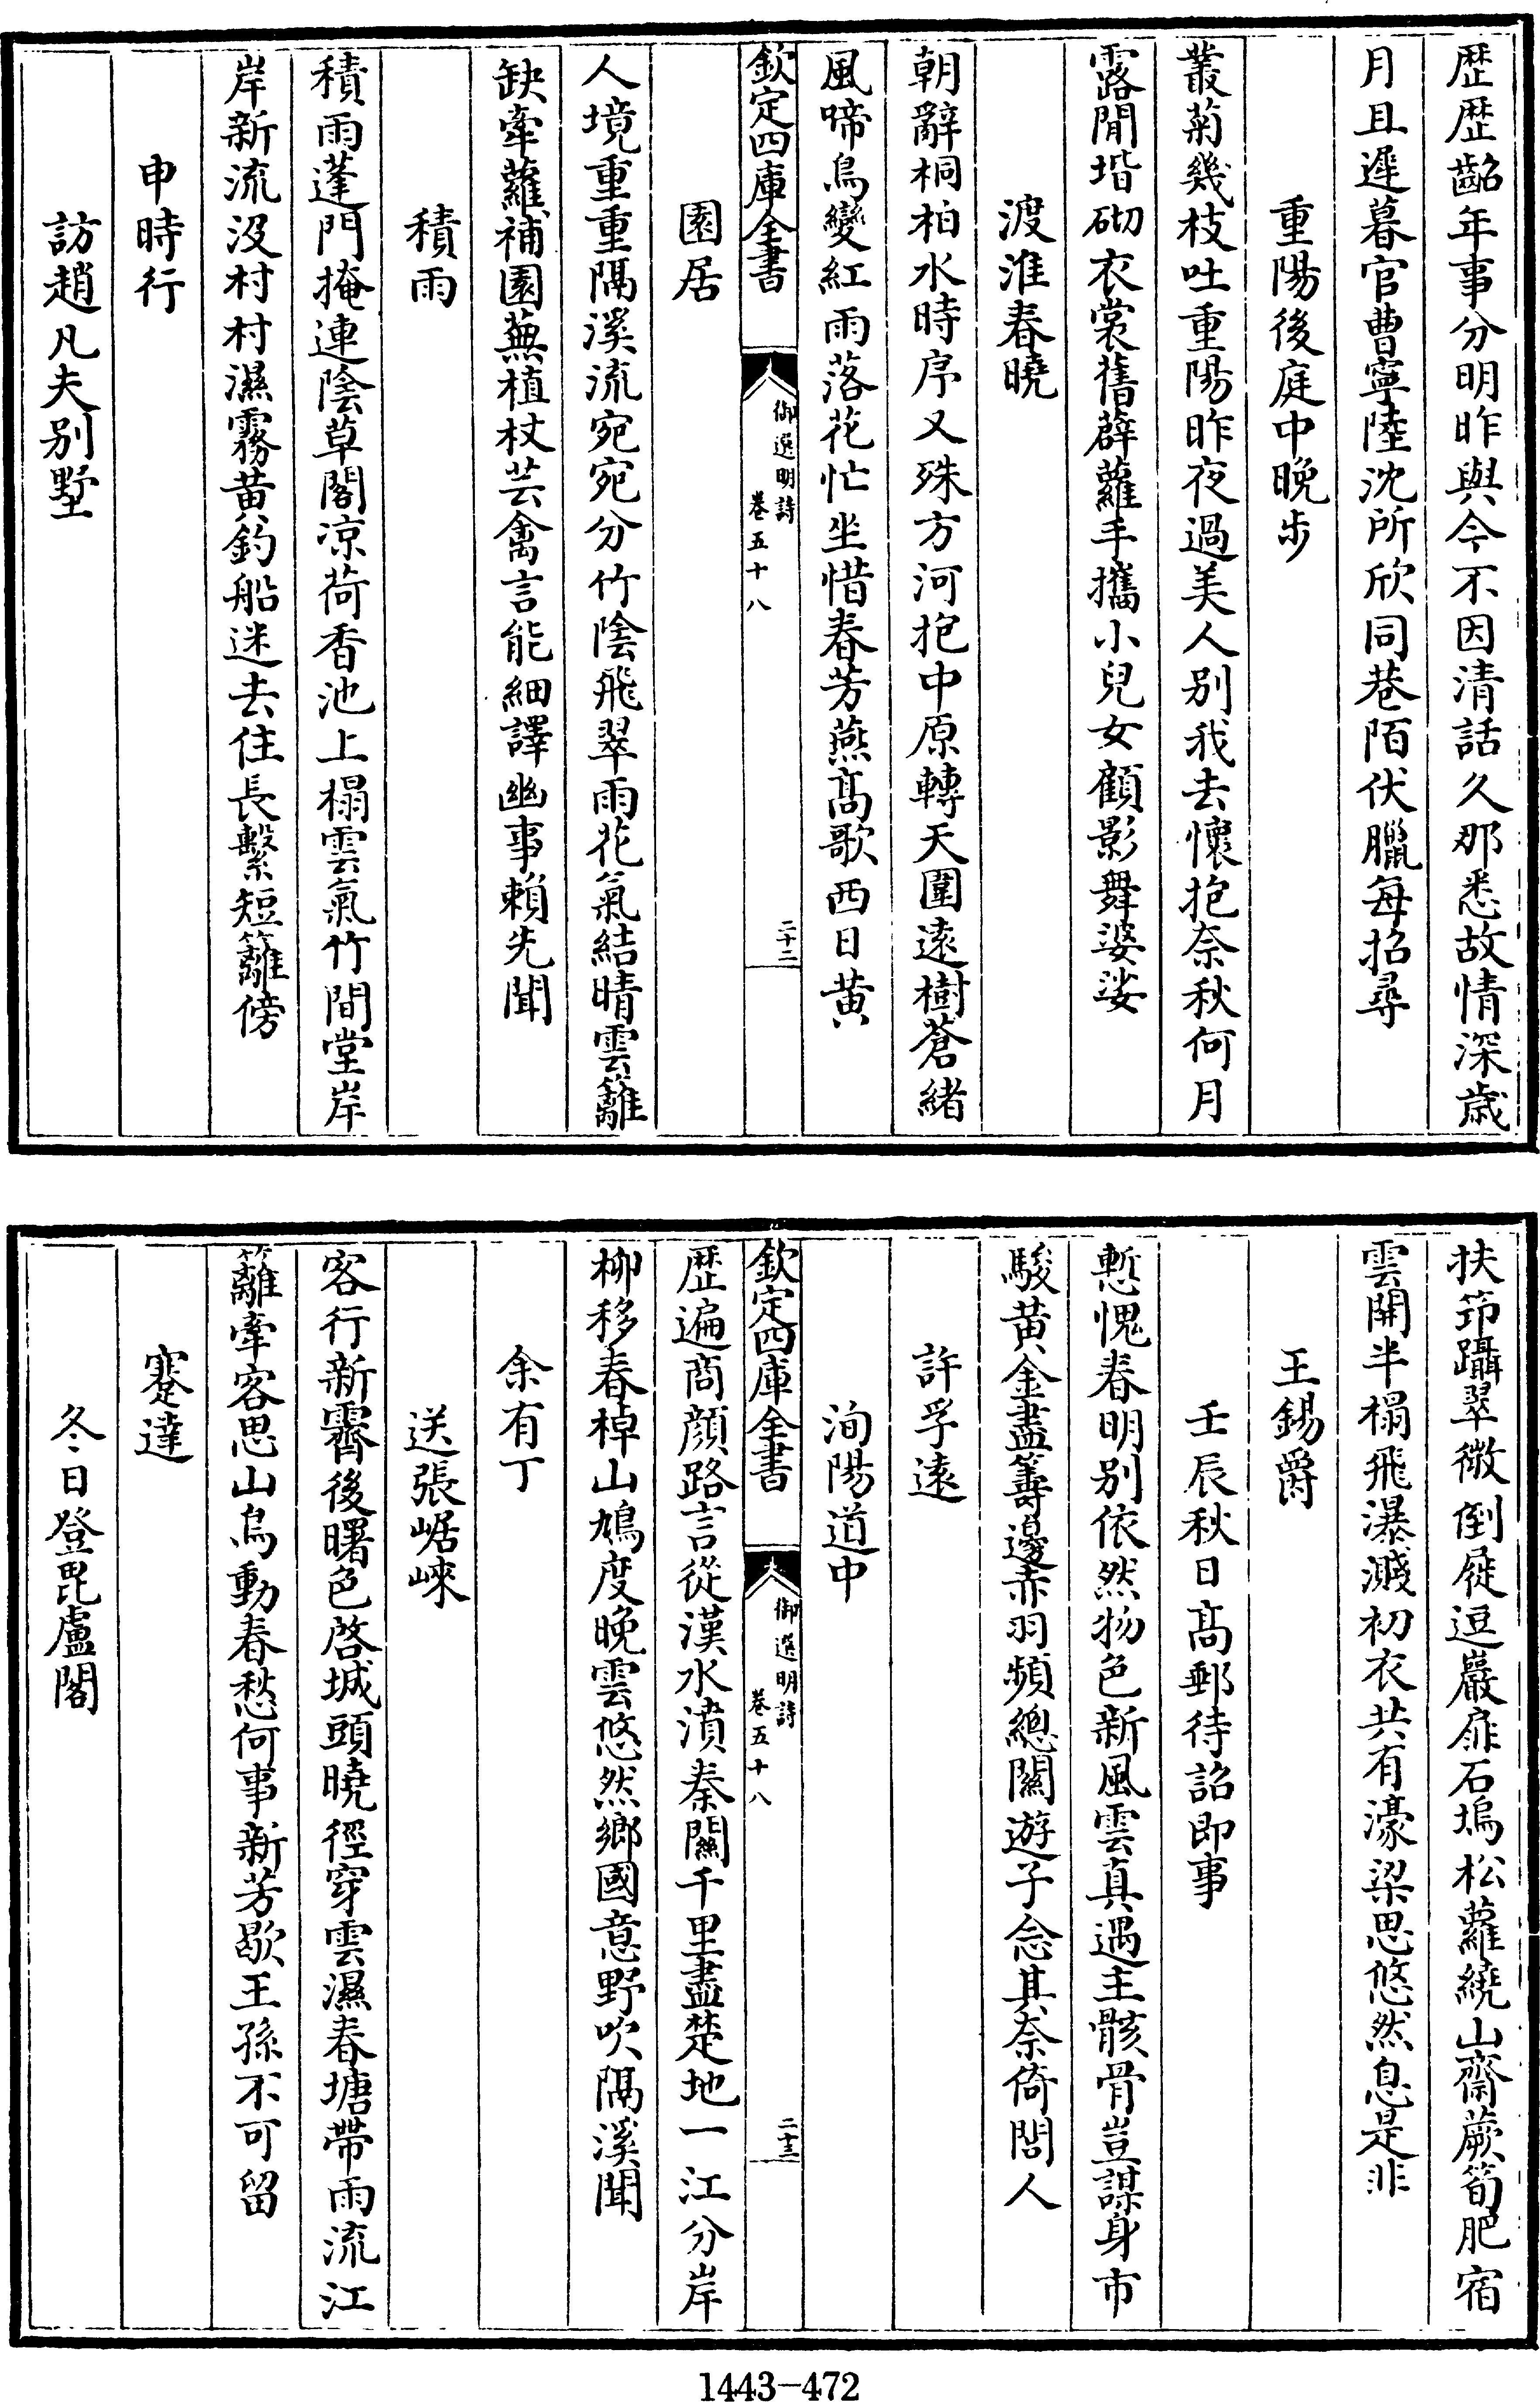 歴歴齠年事分明昨與今不因清話久那悉故情深歳
月且遲暮官曹寧陸沈所欣同巷陌伏臘每招尋
重陽後庭中晚步
叢菊幾枝吐重陽昨夜過美人别我去懐抱奈秋何月
露閒堦砌衣裳舊薜蘿手攜小兒女顧影舞婆娑
渡淮春曉
朝辭桐柏水時序又殊方河抱中原轉天圍遠樹蒼緒
風啼鳥變紅雨落花忙坐惜春芳燕髙歌西日黄
欽定四庫全書
御選明詩
卷五十八
二十二
園居
人境重重隔溪流宛宛分竹陰飛翠雨花氣結晴雲籬
缺牽蘿補園蕪植杖芸禽言能細譯幽事賴先聞
積雨
積雨蓬門掩連陰草閣凉荷香池上榻雲氣竹間堂岸
岸新流没村村濕霧黄釣船迷去住長繫短籬傍
申時行
訪趙凡夫别墅
扶笻躡翠微倒屣逗巖扉石塢松蘿繞山齋蕨筍肥宿
雲開半榻飛瀑濺初衣共有濠梁思悠然息是非
王錫爵
壬辰秋日髙郵待詔即事
慙愧春明别依然物色新風雲真遇主骸骨豈謀身市
駿黄金盡籌邊赤羽頻總關遊子念其奈倚閭人
許孚遠
洵陽道中
欽定四庫全書
御選明詩
卷五十八
二十三
歴遍商顔路言從漢水濆秦關千里盡楚地一江分岸
柳移春棹山鳩度晚雲悠然鄉國意野吹隔溪聞
余有丁
送張崌崍
客行新霽後曙色啓城頭曉徑穿雲濕春塘帶雨流江
籬牽客思山鳥動春愁何事新芳歇王孫不可留
蹇達
冬日登毘盧閣
1443-472